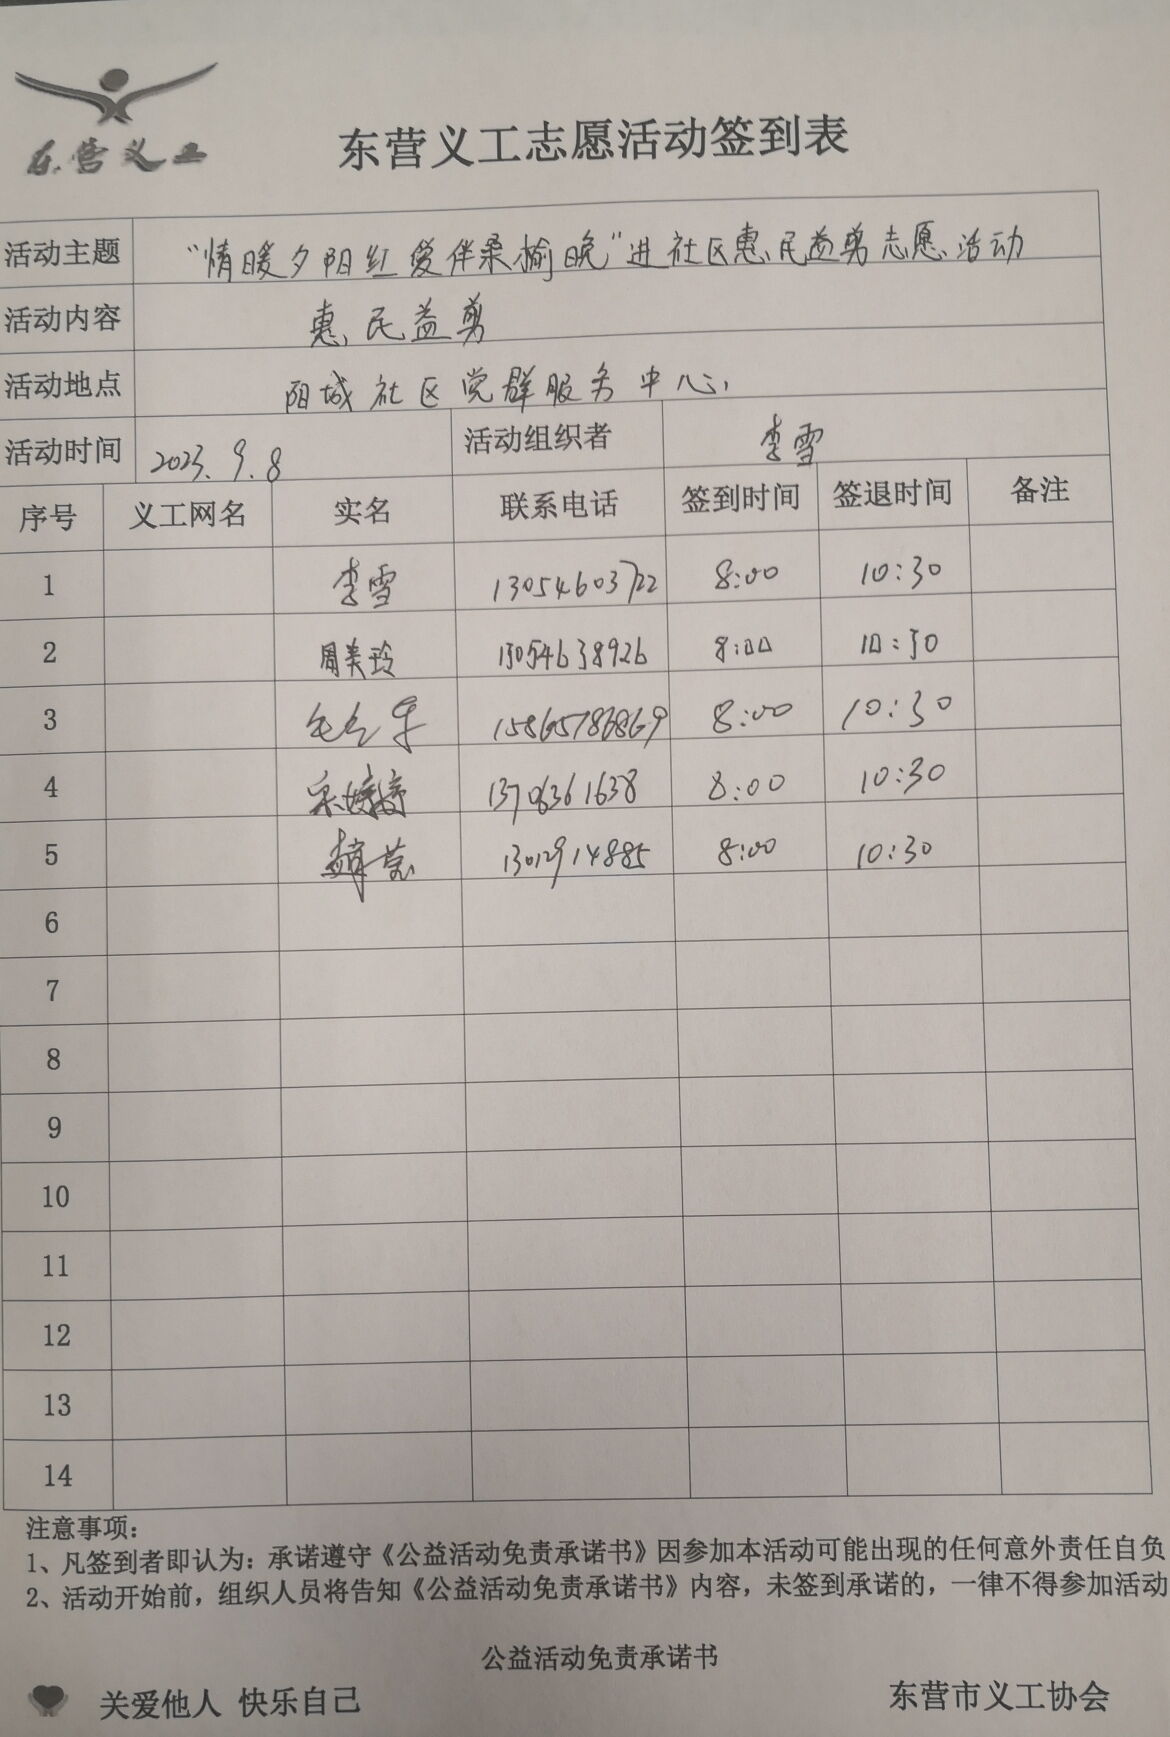 东营义工
东营义工志愿活动签到表
活动主题 “情暖夕阳红 爱伴桑榆晚”进社区惠民益剪志愿活动
活动内容 惠民益剪
活动地点 阳城社区党群服务中心
活动时间 2023.9.8 活动组织者 李雪
序号 义工网名 实名 联系电话 签到时间 签退时间 备注
1 李雪 13054603722 8:00 10:30
2 周美玲 13054638926 8:00 10:30
3 8:00 10:30
4 婷婷 13706361638 8:00 10:30
5 13012914885 8:00 10:30
6
7
8
9
10
11
12
13
14
注意事项:
1、凡签到者即认为: 承诺遵守《公益活动免责承诺书》因参加本活动可能出现的任何意外责任自负
2、活动开始前, 组织人员将告知《公益活动免责承诺书》内容, 未签到承诺的, 一律不得参加活动
公益活动免责承诺书
关爱他人 快乐自己 东营市义工协会